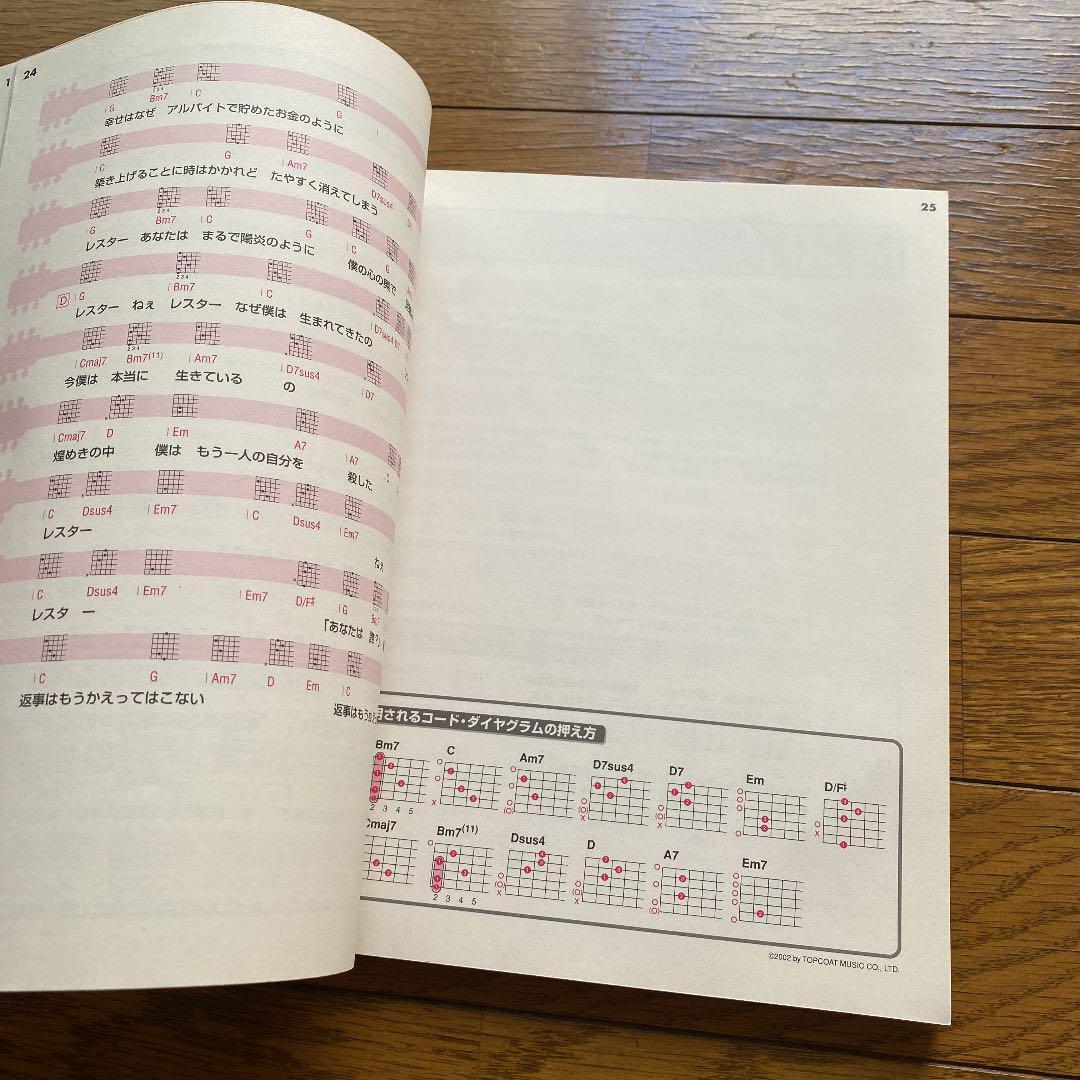 1 24
G Bm7 C G
幸せはなぜ アルバイトで貯めたお金のように
C G Am7 D7sus4
築き上げることに時はかかれど たやすく消えてしまう
G Bm7 C G C G
レスター あなたは まるで陽炎のように 僕の心の奥で
D G Bm7 C D7sus4
レスター ねぇ レスター なぜ僕は 生まれてきたの
Cmaj7 Bm7(11) Am7 D7sus4 D7
今僕は 本当に 生きている の
Cmaj7 D Em A7 A7
煌めきの中 僕は もう一人の自分を 殺した
C Dsus4 Em7 C Dsus4 Em7
レスター ねぇ
C Dsus4 Em7 Em7 D/F# G Bm7
レスタ ー 「あなたは 誰?」
C G Am7 D Em C
返事はもうかえってはこない 返事はもう
25
用されるコード・ダイヤグラムの押え方
Bm7 C Am7 D7sus4 D7 Em D/F#
2 3 4 5
Cmaj7 Bm7(11) Dsus4 D A7 Em7
2 3 4 5
©2002 by TOPCOAT MUSIC CO., LTD.